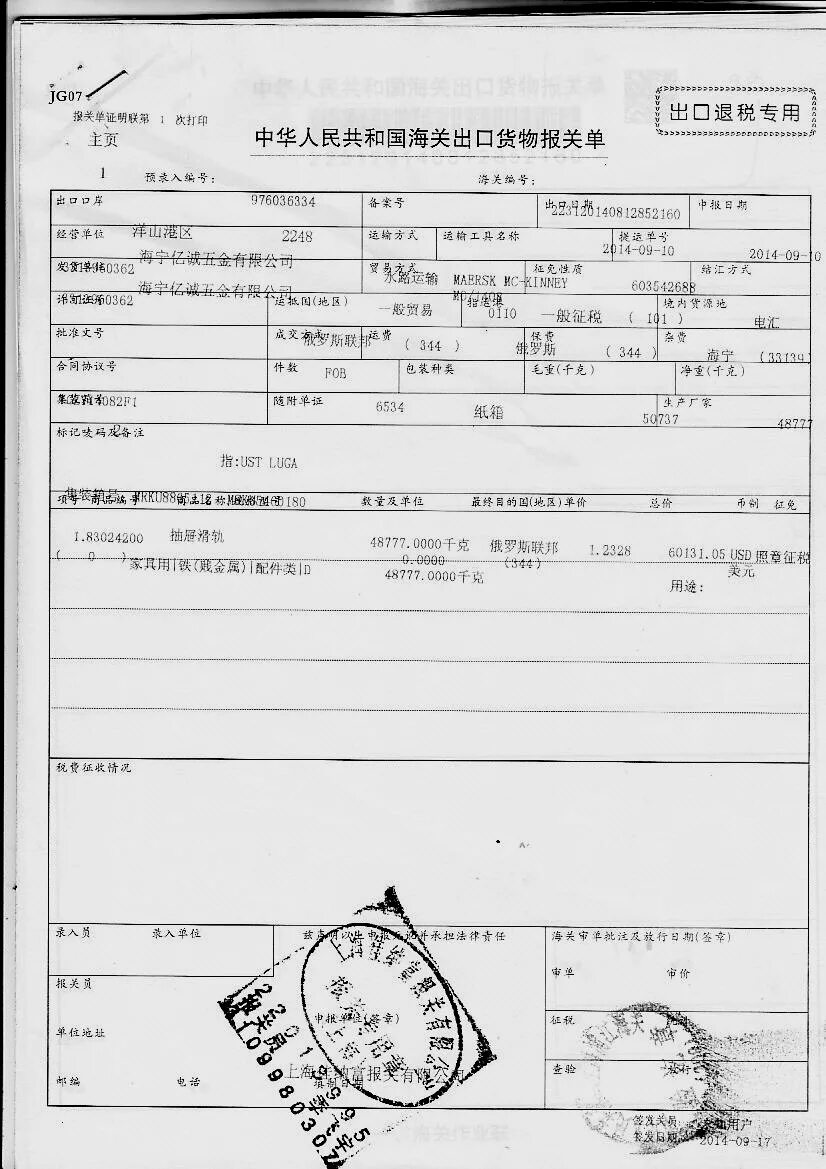 JG07
报关单证明联第 1 次打印
主页
中华人民共和国海关出口货物报关单
出口退税专用
1 预录入编号: 海关编号:
出口口岸 976036334 备案号 出口日期 申报日期
223120140812852160
经营单位 洋山港区 2248 运输方式 运输工具名称 提运单号
2014-09-10 2014-09-10
发货单位 海宁亿诚五金有限公司 贸易方式 水路运输 MAERSK MC-KINNEY 征免性质 603542688 结汇方式
海宁亿诚五金有限公司 运抵国(地区) 一般贸易 指运港 0110 一般征税 ( 101 ) 境内货源地 电汇
批准文号 成交方式 俄罗斯联邦 运费 ( 344 ) 保费 俄罗斯 ( 344 ) 杂费 海宁 (33139)
合同协议号 件数 FOB 包装种类 毛重(千克) 净重(千克)
随附单证 6534 纸箱 生产厂家
50737 48777
标记唛码及备注
指:UST LUGA
项号 商品编号 商品名称 数量及单位 最终目的国(地区)单价 总价 币制 征免
1.83024200 抽屉滑轨 48777.0000千克 俄罗斯联邦 1.2328 60131.05 USD 照章征税
( 0 ) 家具用|铁(贱金属)|配件类|D 0.0000 (344) 美元
48777.0000千克 用途:
税费征收情况
录入员 录入单位 兹声明以上申报无讹并承担法律责任 海关审单批注及放行日期(签章)
审单 审价
报关员
申报单位(签章) 征税
单位地址
查验 放行
邮编 电话 填制日期
签发关员:
签发日期: 2014-09-17